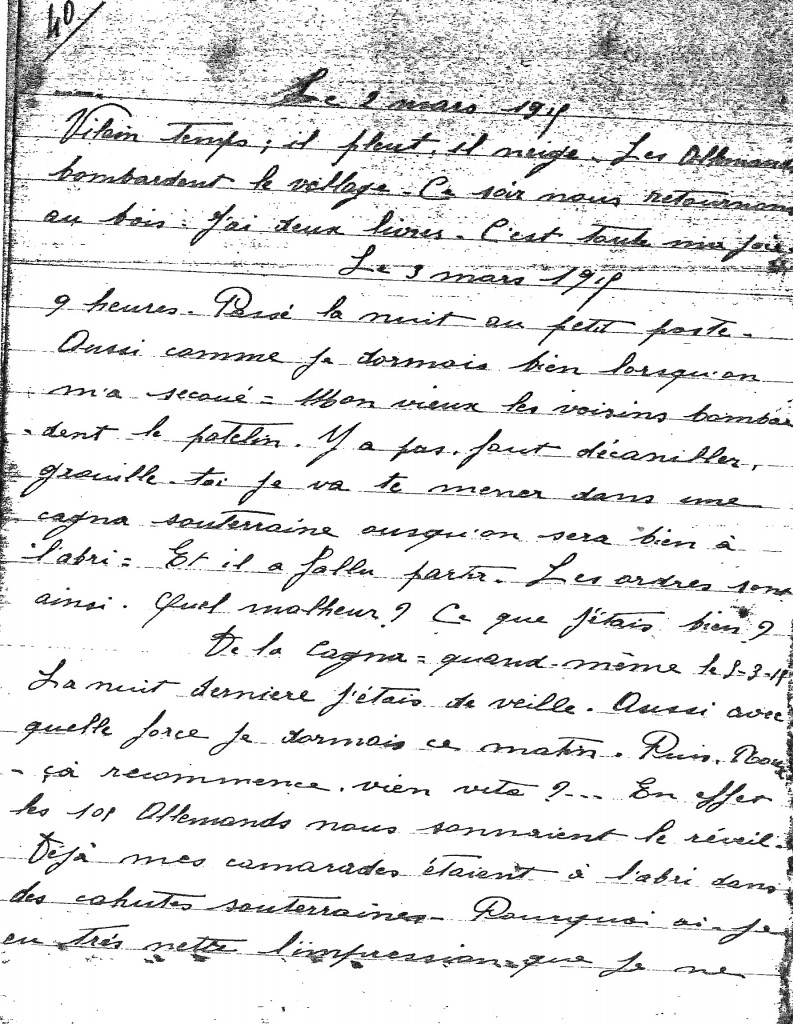 40
Le 2 mars 1915
Vilain temps; il pleut, il neige. Les Allemands
bombardent le village. Ce soir nous retournons
au bois. J'ai deux livres. C'est toute ma joie.
Le 3 mars 1915
9 heures. Passé la nuit au petit poste.
Aussi comme je dormais bien lorsqu'on
m'a secoué = Mon vieux les voisins bombar
-dent le patelin. Y a pas, faut décaniller,
grouille-toi je va te mener dans une
cagna souterraine ousqu'on sera bien à
l'abri = Et il a fallu partir. Les ordres sont
ainsi. Quel malheur? Ce que j'étais bien?
De la Cagna = quand-même le 5-3-15
La nuit derniere j'étais de veille. Aussi avec
quelle force je dormais ce matin.
- çà recommence, vien vite?... En effet
les 105 Allemands nous sonnaient le réveil.
Déjà mes camarades étaient à l'abri dans
des cahutes souterraines. Pourquoi ai-je
eu trés nette l'impression que je ne